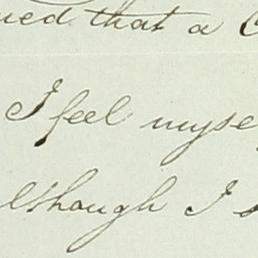 ued that a C
I feel myse
lthough I